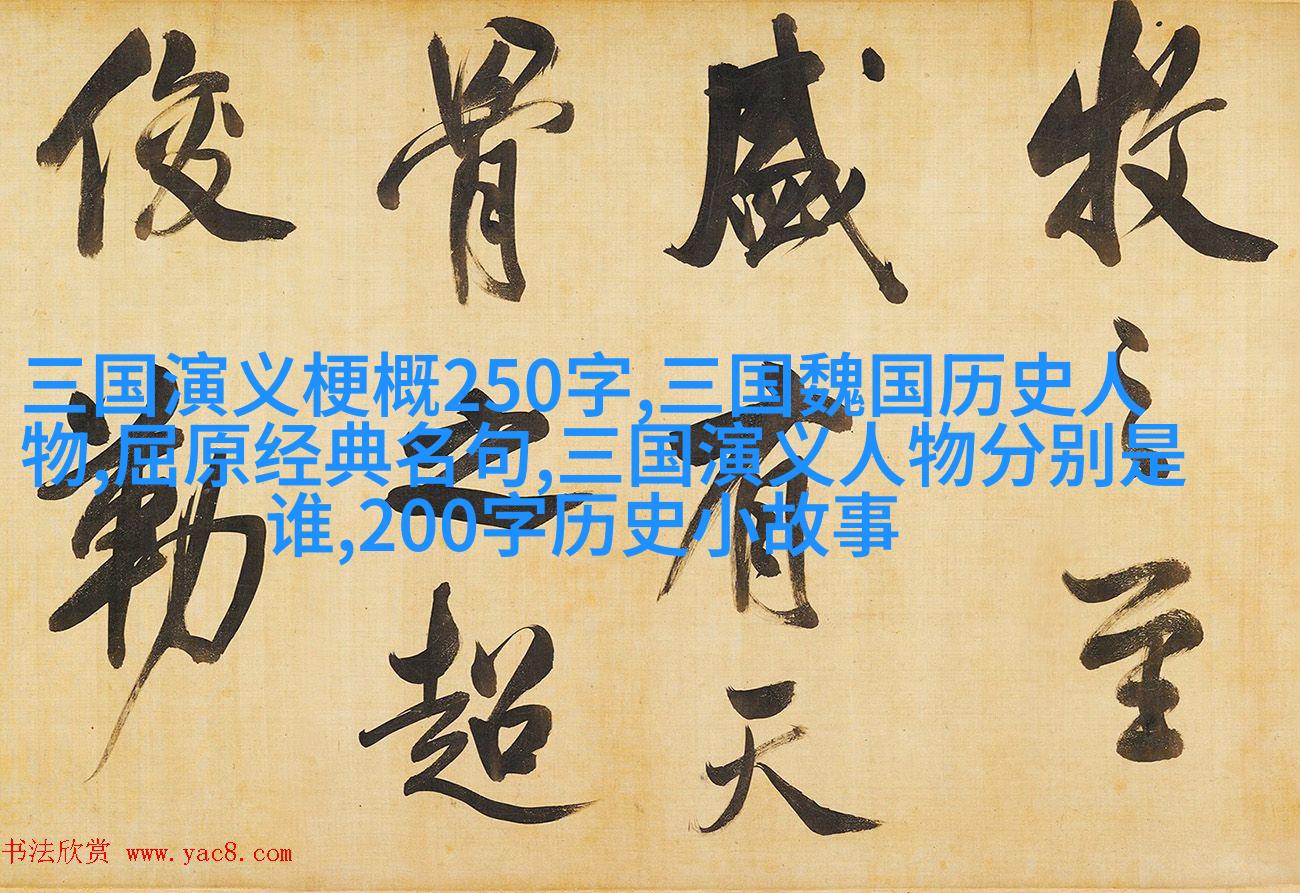 牧之至
盛有天
骨之超
俊勒
三国演义梗概250字,三国魏国历史人
物,屈原经典名句,三国演义人物分别是
谁,200字历史小故事
书法欣赏 www.yac8.com